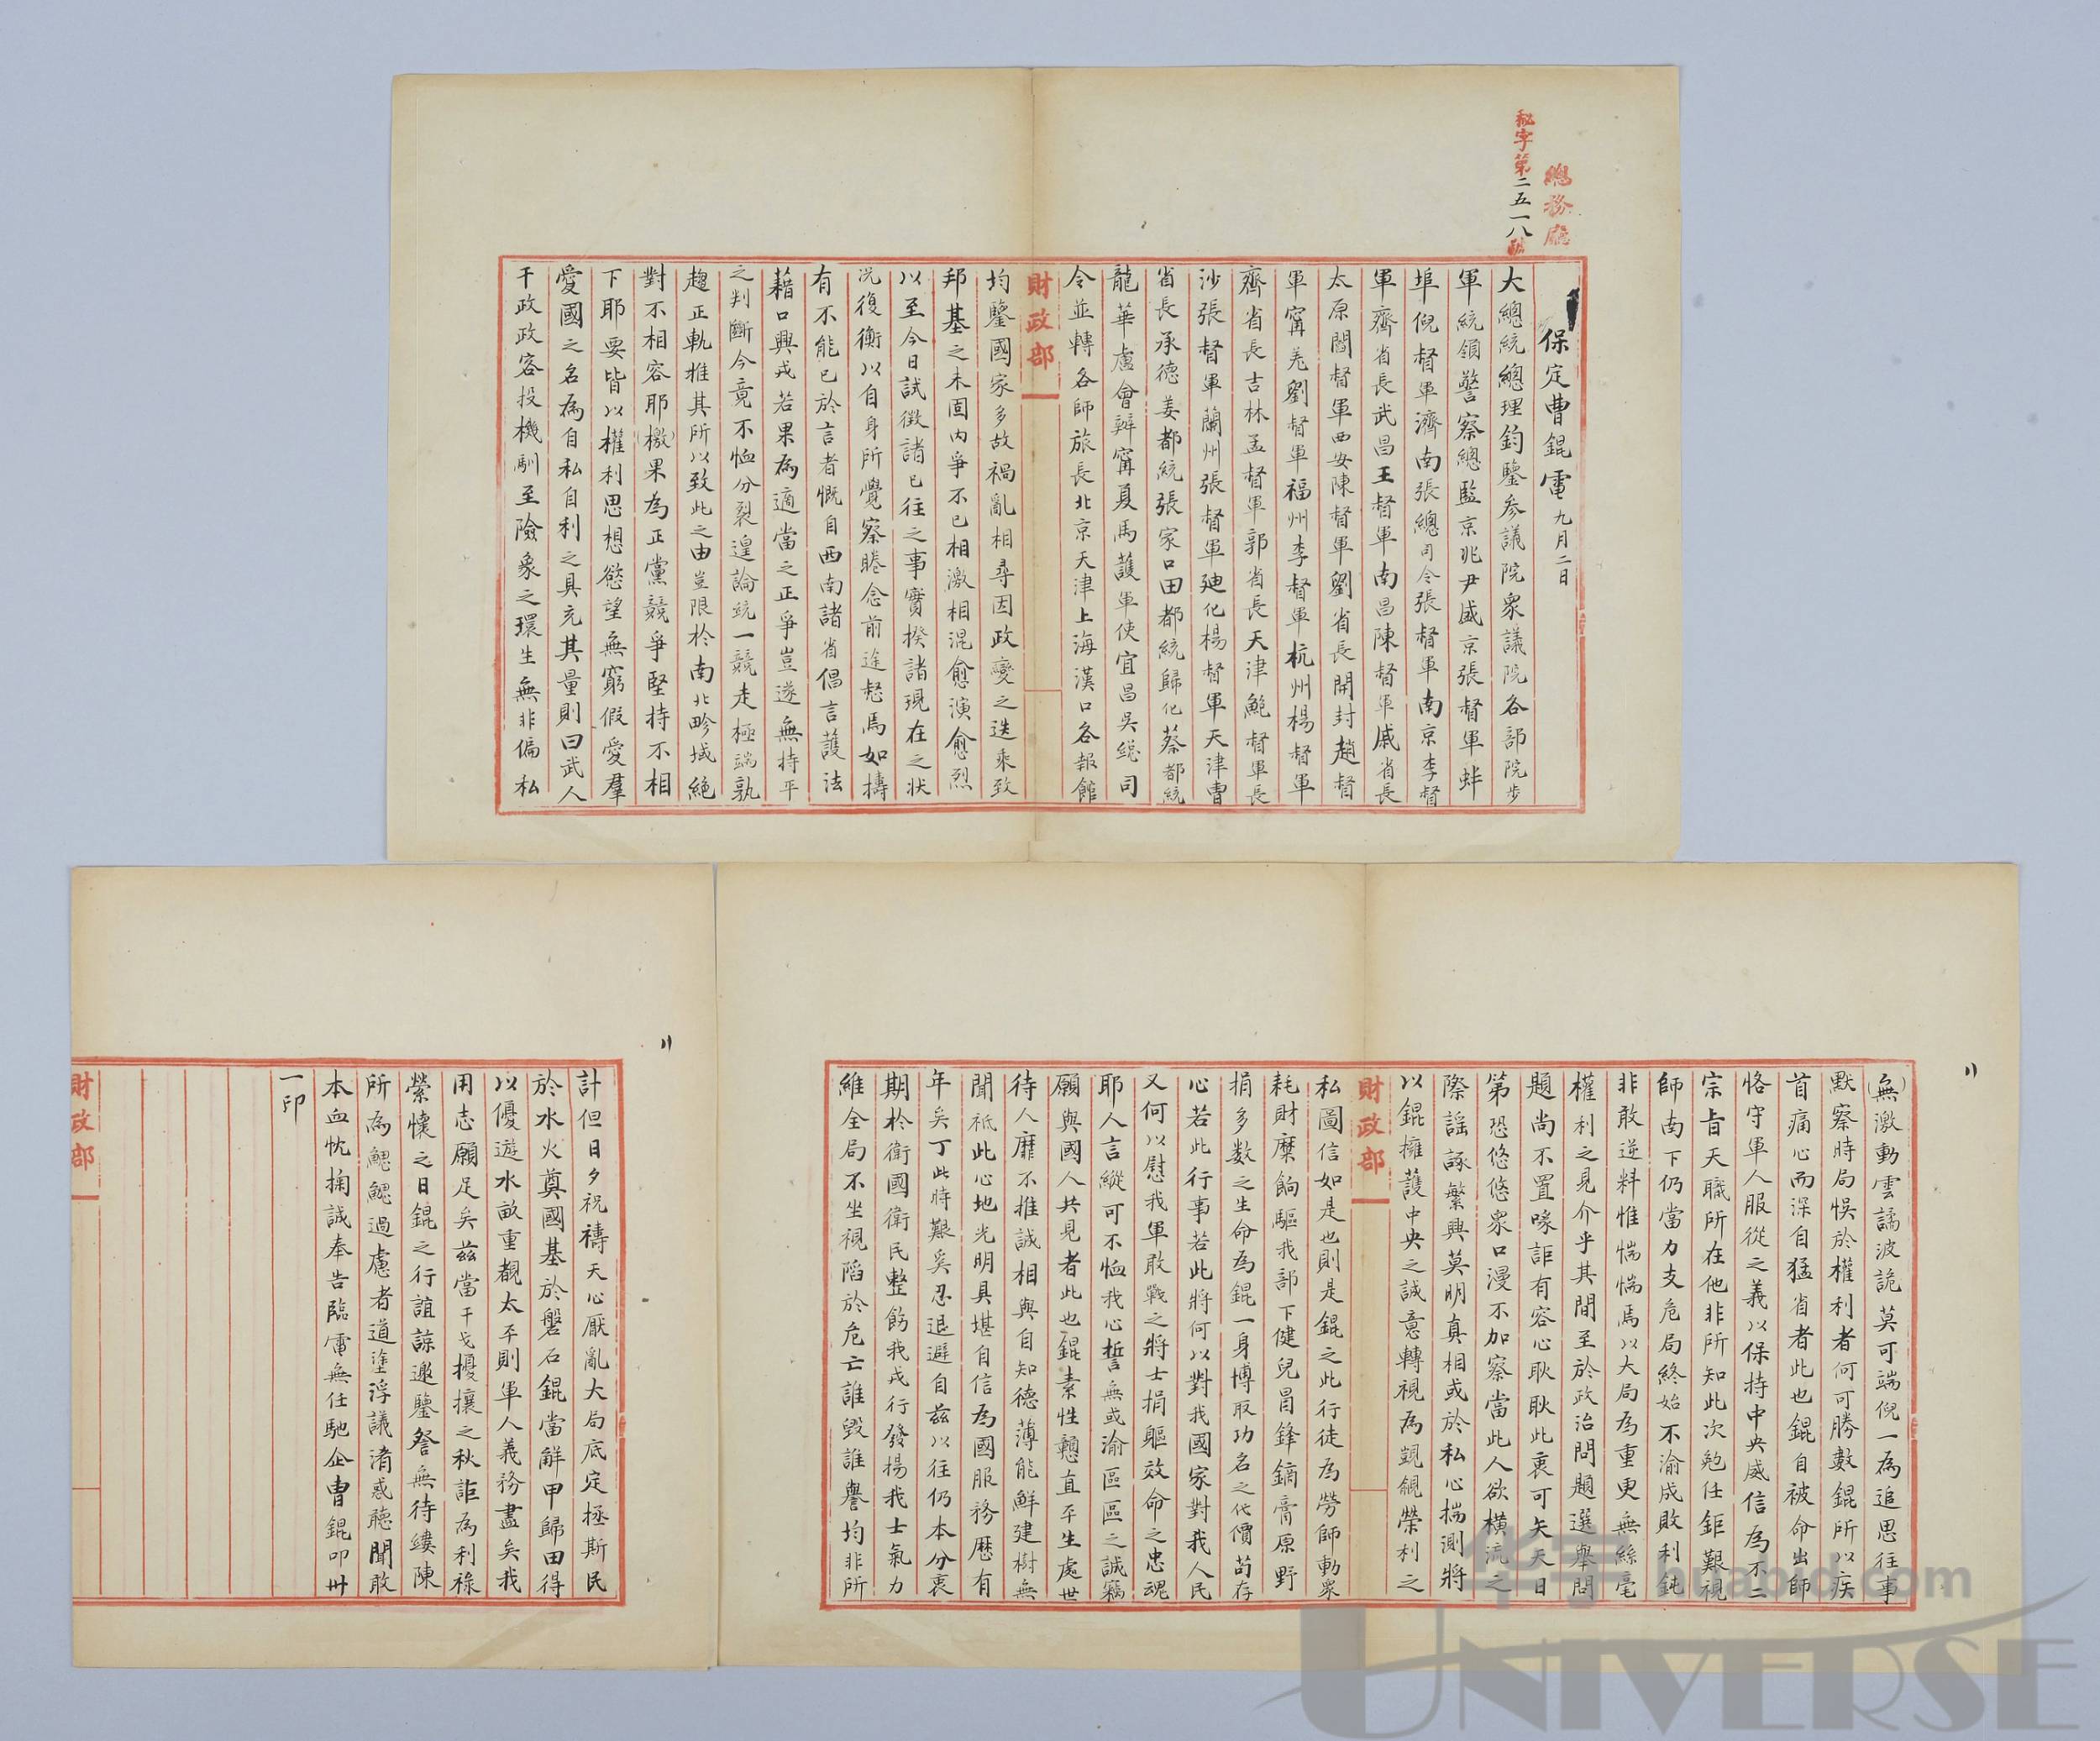 總務廳
秘字第二五一八號
保定曹錕電 九月二日
大總統總理鈞鑒參議院眾議院各部院步
軍統領警察總監京兆尹盛京張督軍蚌
埠倪督軍濟南張總司令張督軍南京李督
軍齊省長武昌王督軍南昌陳督軍戚省長
太原閻督軍西安陳督軍劉省長開封趙督
軍甯羌劉督軍福州李督軍杭州楊督軍
齊省長吉林孟督軍郭省長天津鮑督軍長
沙張督軍蘭州張督軍廸化楊督軍天津曹
省長承德姜都統張家口田都統歸化蔡都統
龍華盧會辦甯夏馬護軍使宜昌吳總司
令並轉各師旅長北京天津上海漢口各報館
財政部
均鑒國家多故禍亂相尋因政變之迭乘致
邦基之未固內爭不已相激相混愈演愈烈
以至今日試徵諸已往之事實揆諸現在之狀
況復衡以自身所覺察睠念前途惄焉如擣
有不能已於言者慨自西南諸省倡言護法
藉口興戎若果為適當之正爭豈遂無持平
之判斷今竟不恤分裂遑論統一競走極端孰
趨正軌推其所以致此之由豈限於南北畛域絕
對不相容耶(檄)果為正黨競爭堅持不相
下耶要皆以權利思想慾望無窮假愛羣
愛國之名為自私自利之具充其量則曰武人
干政政客投機馴至險象之環生無非偏私
(無)激動雲譎波詭莫可端倪一為追思往事
默察時局悞於權利者何可勝數錕所以疾
首痛心而深自猛省者此也錕自被命出師
恪守軍人服從之義以保持中央威信為不二
宗旨天職所在他非所知此次勉任鉅艱視
師南下仍當力支危局終始不渝成敗利鈍
非敢逆料惟惴惴焉以大局為重更無絲毫
權利之見介乎其間至於政治問題選舉問
題尚不置喙詎有容心耿耿此衷可矢天日
第恐悠悠眾口漫不加察當此人欲橫流之
際謠諑繁興莫明真相或於私心揣測將
以錕擁護中央之誠意轉視為覬覦榮利之
財政部
私圖信如是也則是錕之此行徒為勞師動眾
耗財糜餉驅我部下健兒冒鋒鏑膏原野
捐多數之生命為錕一身博取功名之代價茍存
心若此行事若此將何以對我國家對我人民
又何以慰我軍敢戰之將士捐軀效命之忠魂
耶人言縱可不恤我心誓無或渝區區之誠竊
願與國人共見者此也錕素性戇直平生處世
待人靡不推誠相與自知德薄能鮮建樹無
聞祗此心地光明具堪自信為國服務歷有
年矣丁此時艱奚忍退避自茲以往仍本分衷
期於衛國衛民整飭我戎行發揚我士氣力
維全局不坐視陷於危亡誰毀誰譽均非所
計但日夕祝禱天心厭亂大局底定拯斯民
於水火奠國基於磐石錕當解甲歸田得
以優遊水畝重觀太平則軍人義務盡矣我
用志願足矣茲當干戈擾攘之秋詎為利祿
縈懷之日錕之行誼諒邀鑒詧無待縷陳
所為鰓鰓過慮者道塗浮議淆惑聽聞敢
本血忱掬誠奉告臨電無任馳企曹錕叩卅
一印
財政部
华宇 huabid.com
UNIVERSE